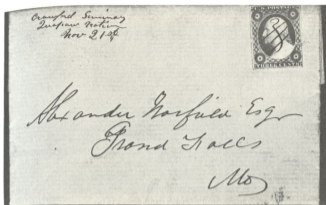 Crawford Seminary
Quapaw Nation
Nov 21st
U.S. POSTAGE
THREE CENTS
Alexander Norfield Esqr
Grand Falls
Mo